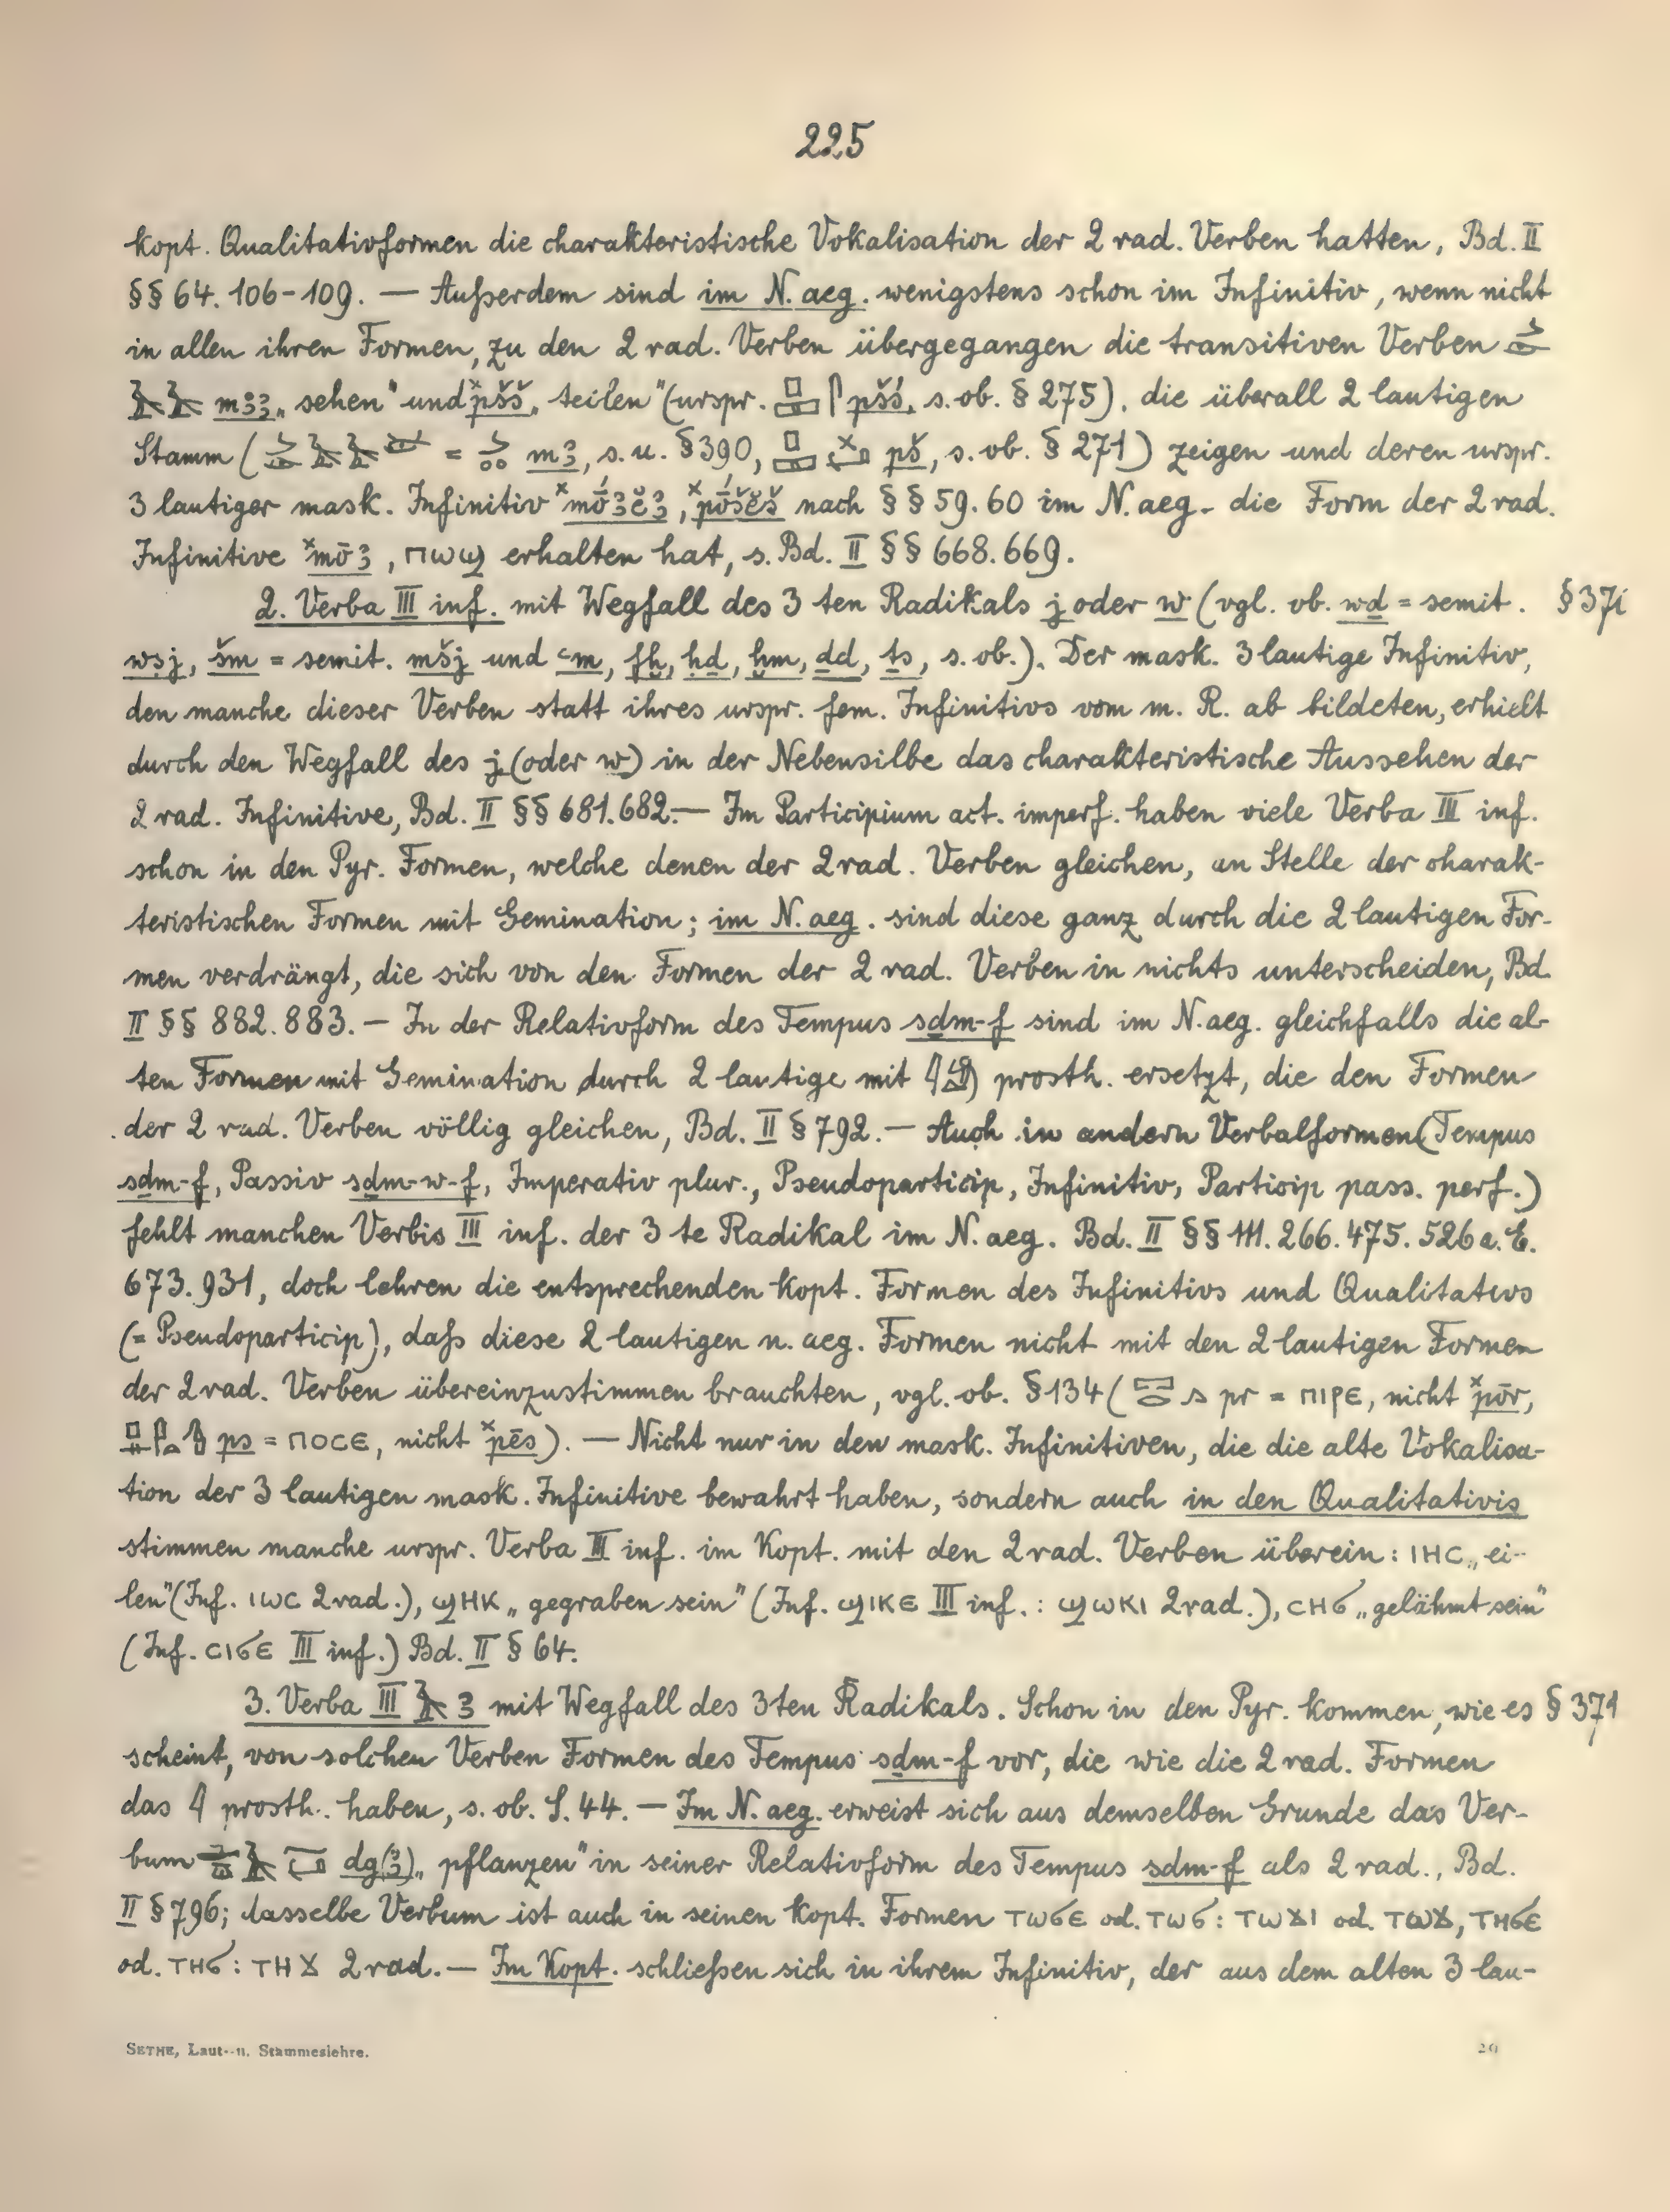 225
kopt. Qualitativformen die charakteristische Vokalisation der 2 rad. Verben hatten, Bd. II
§§ 64. 106-109. — Außerdem sind im N. aeg. wenigstens schon im Infinitiv, wenn nicht
in allen ihren Formen, zu den 2 rad. Verben übergegangen die transitiven Verben
mꜣꜣ „sehen" und ˣpšš „teilen" (urspr. pšś, s. ob. § 275), die überall 2 lautigen
Stamm ( = mꜣ, s. u. § 390, pš, s. ob. § 271) zeigen und deren urspr.
3 lautiger mask. Infinitiv ˣmṓꜣĕꜣ, ˣpṓšĕš nach §§ 59. 60 im N. aeg. die Form der 2 rad.
Infinitive ˣmōꜣ, ⲡⲱϣ erhalten hat, s. Bd. II §§ 668. 669.
2. Verba III inf. mit Wegfall des 3 ten Radikals j oder w (vgl. ob. wd = semit. § 371
wsj, šm = semit. mšj und ꜥm, fḫ, hd, ḫm, dd, ṯs, s. ob.). Der mask. 3 lautige Infinitiv,
den manche dieser Verben statt ihres urspr. fem. Infinitivs vom m. R. ab bildeten, erhielt
durch den Wegfall des j (oder w) in der Nebensilbe das charakteristische Aussehen der
2 rad. Infinitive, Bd. II §§ 681. 682. — Im Participium act. imperf. haben viele Verba III inf.
schon in den Pyr. Formen, welche denen der 2 rad. Verben gleichen, an Stelle der charak-
teristischen Formen mit Gemination; im N. aeg. sind diese ganz durch die 2 lautigen For-
men verdrängt, die sich von den Formen der 2 rad. Verben in nichts unterscheiden, Bd.
II §§ 882. 883. — In der Relativform des Tempus sḏm-f sind im N. aeg. gleichfalls die al-
ten Formen mit Gemination durch 2 lautige mit 𓇋 prosth. ersetzt, die den Formen
der 2 rad. Verben völlig gleichen, Bd. II § 792. — Auch in andern Verbalformen (Tempus
sḏm-f, Passiv sḏm-w-f, Imperativ plur., Pseudoparticip, Infinitiv, Particip pass. perf.)
fehlt manchen Verbis III inf. der 3 te Radikal im N. aeg. Bd. II §§ 111. 266. 475. 526 a. E.
673. 931, doch lehren die entsprechenden kopt. Formen des Infinitivs und Qualitativs
(= Pseudoparticip), daß diese 2 lautigen n. aeg. Formen nicht mit den 2 lautigen Formen
der 2 rad. Verben übereinzustimmen brauchten, vgl. ob. § 134 (𓉐𓂋𓂻 pr = ⲡⲓⲣⲉ, nicht ˣpōr,
ps = ⲡⲟⲥⲉ, nicht ˣpēs). — Nicht nur in den mask. Infinitiven, die die alte Vokalisa-
tion der 3 lautigen mask. Infinitive bewahrt haben, sondern auch in den Qualitativis
stimmen manche urspr. Verba III inf. im Kopt. mit den 2 rad. Verben überein: ⲓⲏⲥ „ei-
len" (Inf. ⲓⲱⲥ 2 rad.), ϣⲏⲕ „gegraben sein" (Inf. ϣⲓⲕⲉ III inf. : ϣⲱⲕⲓ 2 rad.), ⲥⲏϭ „gelähmt sein"
(Inf. ⲥⲓϭⲉ III inf.) Bd. II § 64.
3. Verba III 𓄿 ꜣ mit Wegfall des 3ten Radikals. Schon in den Pyr. kommen, wie es § 371
scheint, von solchen Verben Formen des Tempus sḏm-f vor, die wie die 2 rad. Formen
das 𓇋 prosth. haben, s. ob. S. 44. — Im N. aeg. erweist sich aus demselben Grunde das Ver-
bum dg(ꜣ) „pflanzen" in seiner Relativform des Tempus sḏm-f als 2 rad., Bd.
II § 796; dasselbe Verbum ist auch in seinen kopt. Formen ⲧⲱϭⲉ od. ⲧⲱϭ : ⲧⲱϫⲓ od. ⲧⲱϫ, ⲧⲏϭⲉ
od. ⲧⲏϭ : ⲧⲏϫ 2 rad. — Im Kopt. schließen sich in ihrem Infinitiv, der aus dem alten 3 lau-
SETHE, Laut- u. Stammeslehre. 29